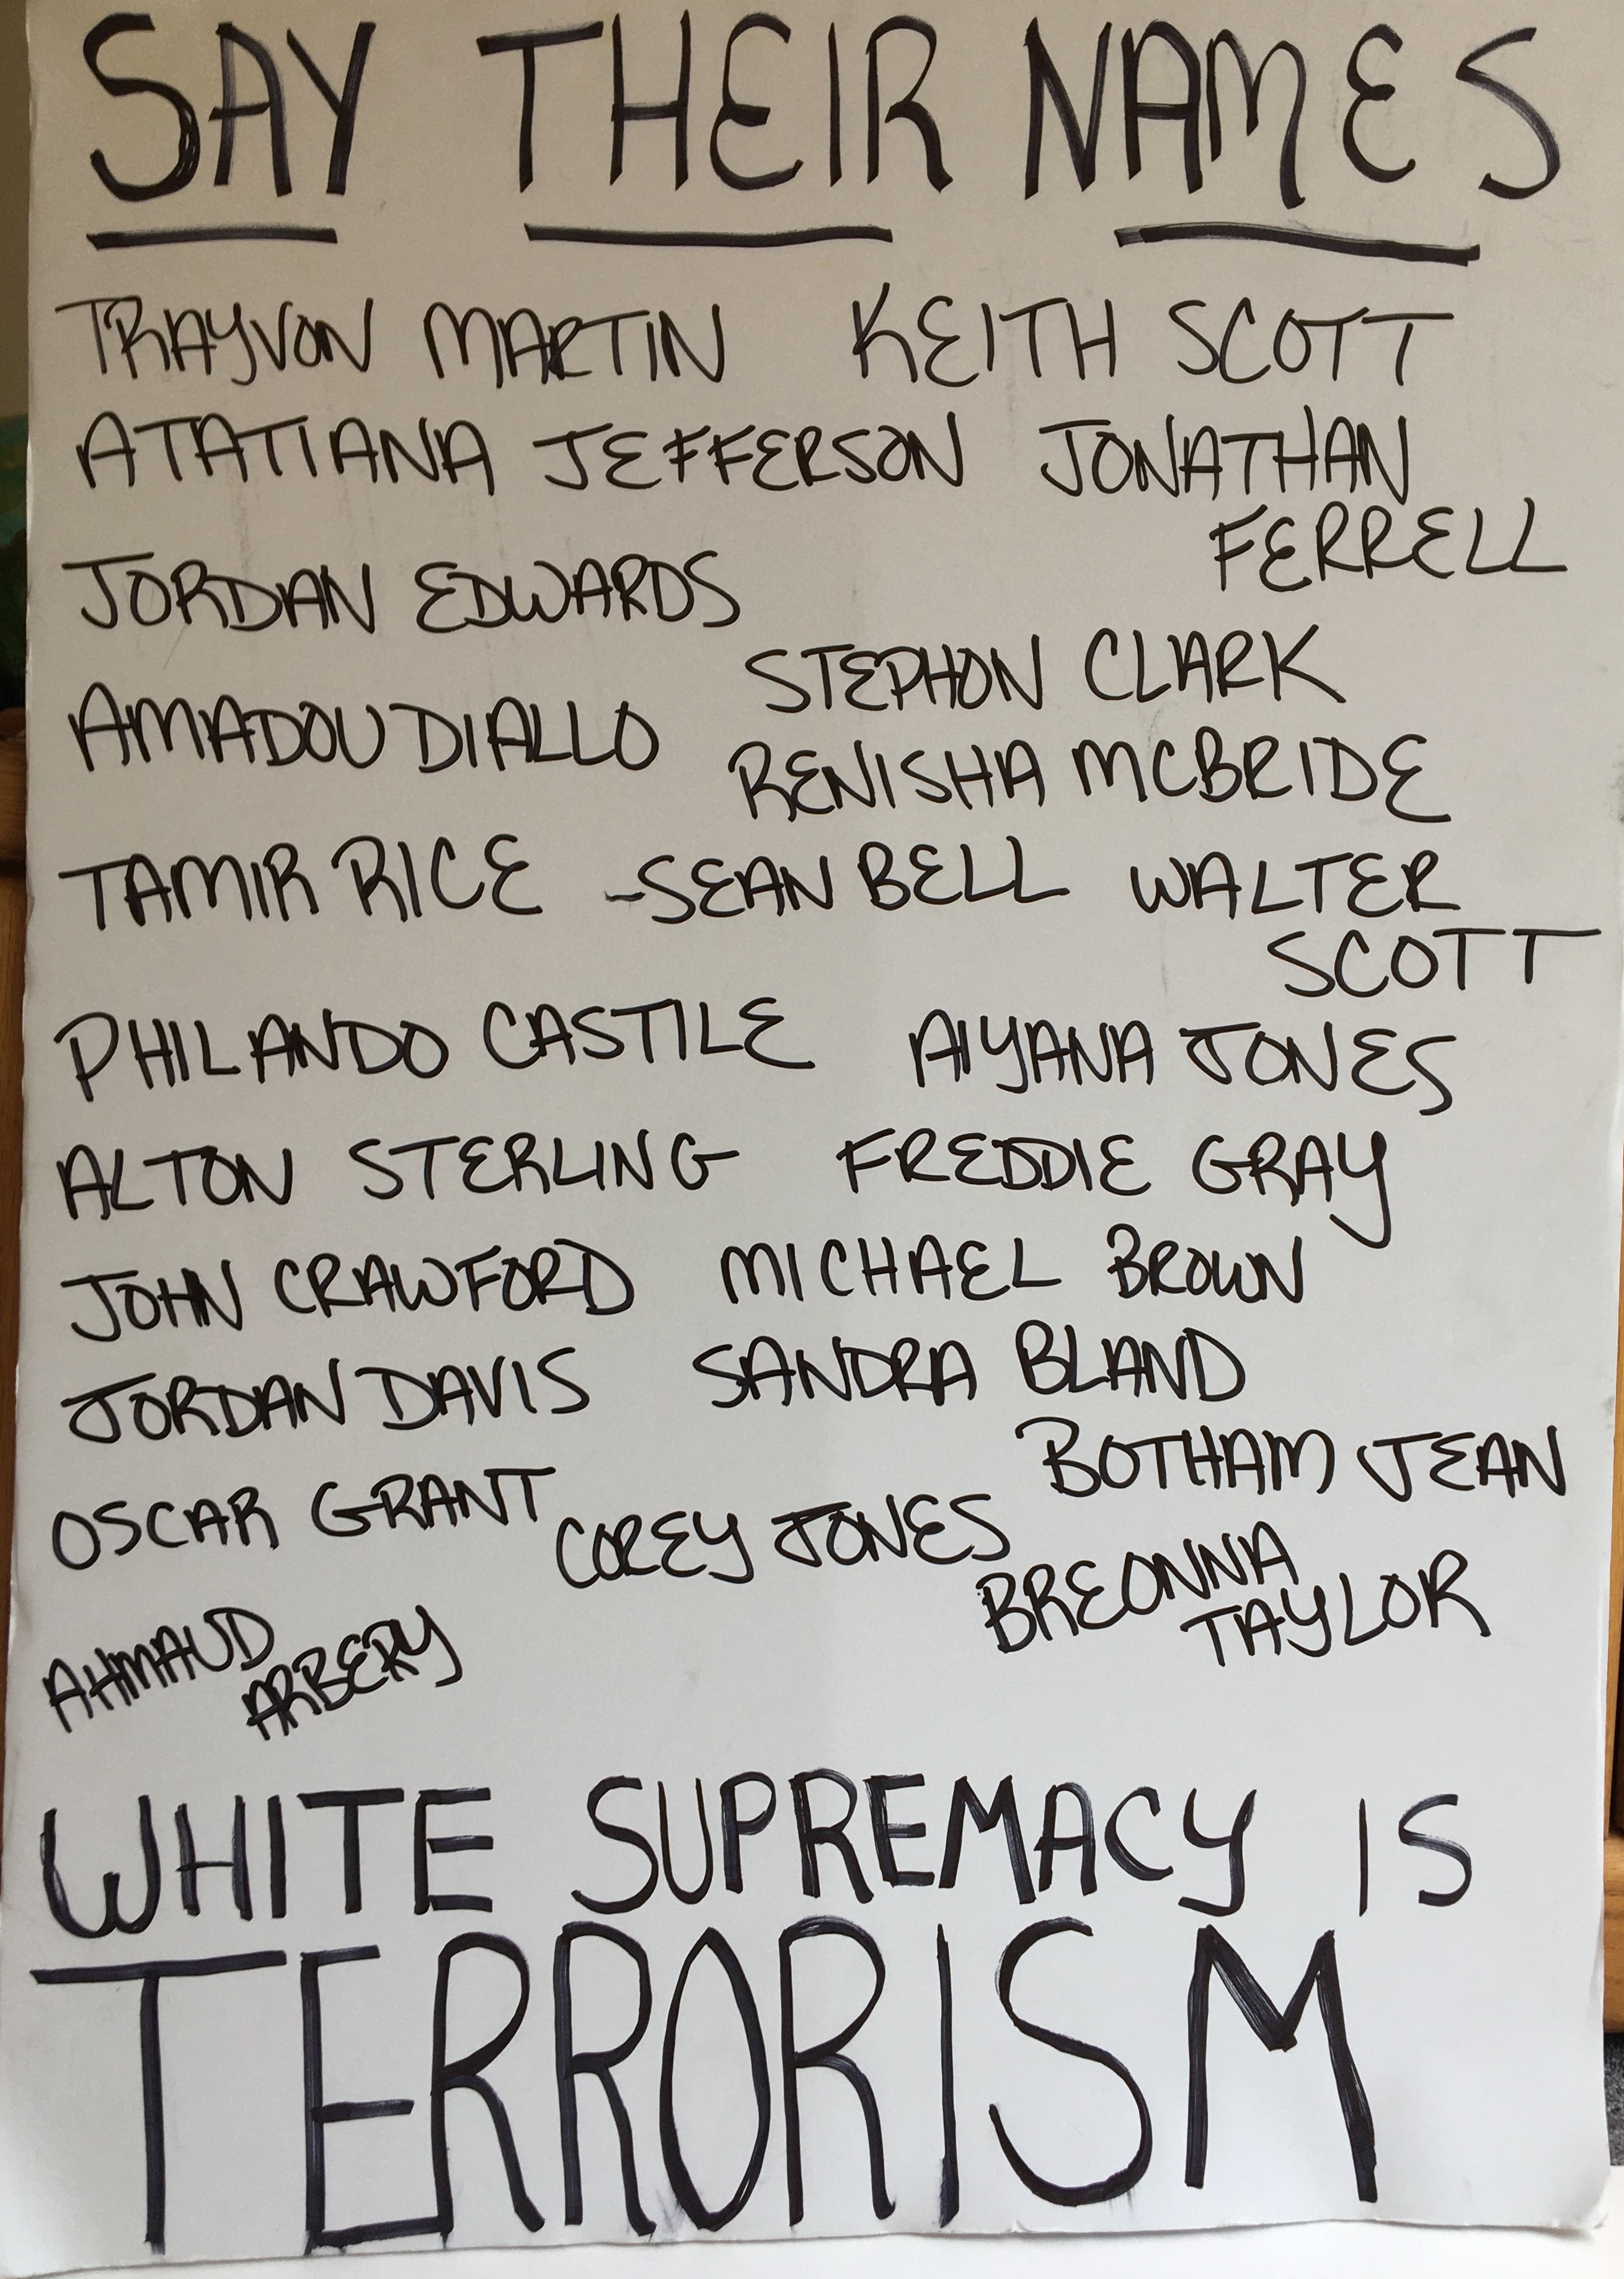 SAY THEIR NAMES
TRAYVON MARTIN KEITH SCOTT
ATATIANA JEFFERSON JONATHAN
FERRELL
JORDAN EDWARDS
STEPHON CLARK
AMADOU DIALLO
RENISHA MCBRIDE
TAMIR RICE -SEAN BELL WALTER
SCOTT
PHILANDO CASTILE AIYANA JONES
ALTON STERLING FREDDIE GRAY
JOHN CRAWFORD MICHAEL BROWN
JORDAN DAVIS SANDRA BLAND
BOTHAM JEAN
OSCAR GRANT COREY JONES
BREONNA
TAYLOR
AHMAUD
ARBERY
WHITE SUPREMACY IS
TERRORISM